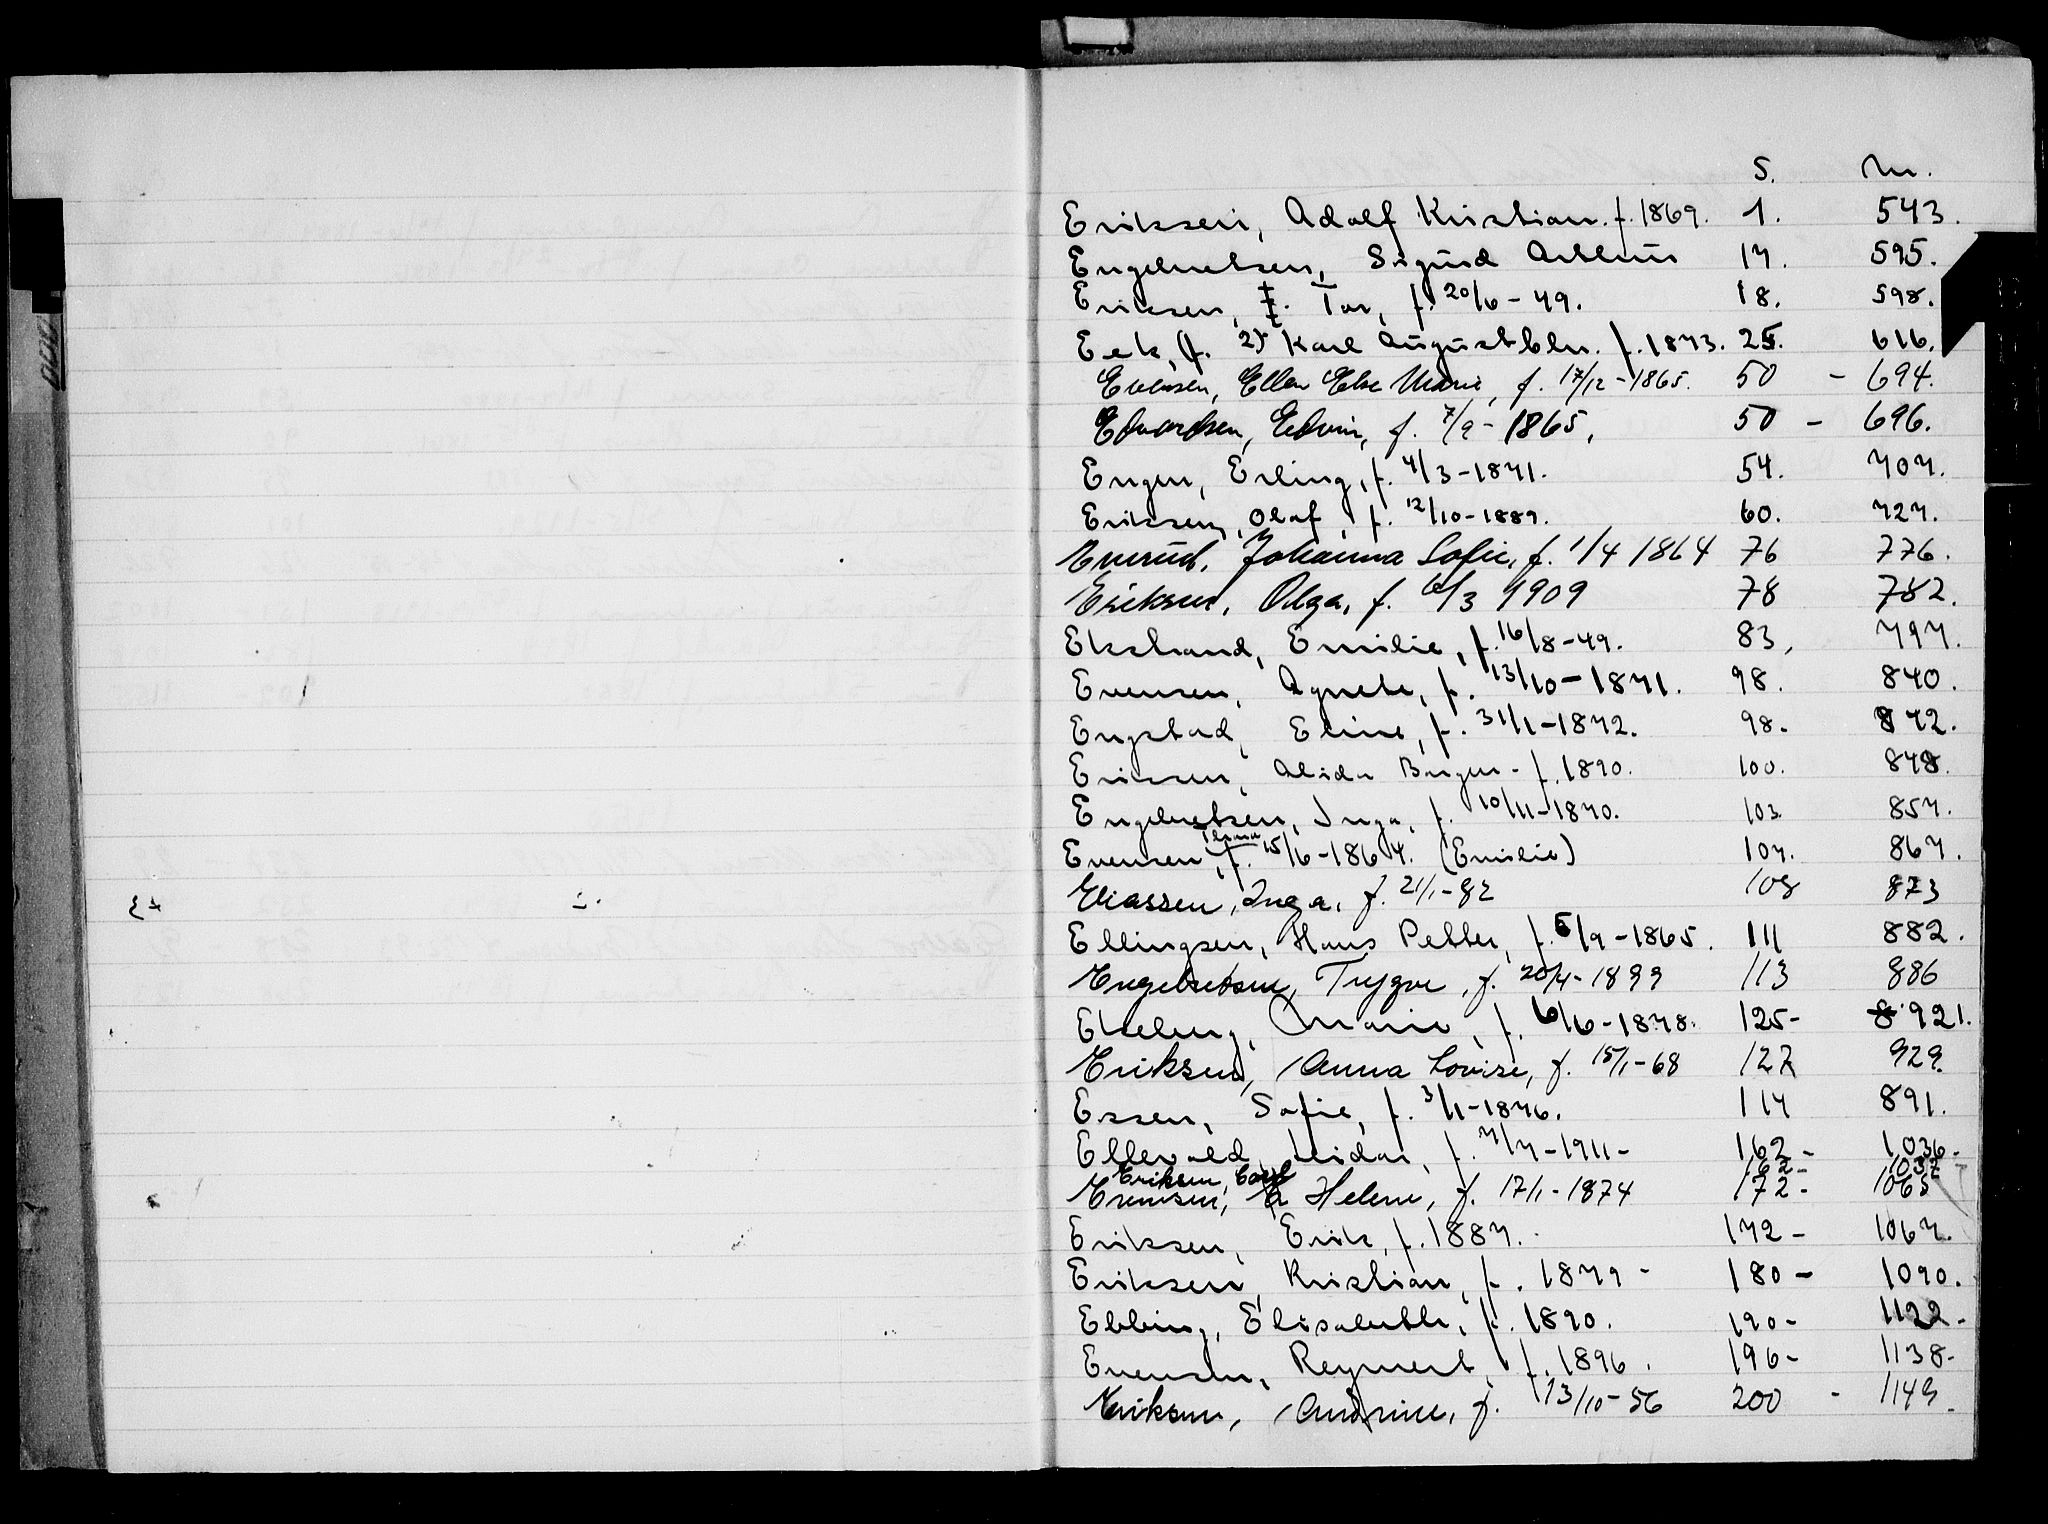 S. Nr.
Eriksen, Adolf Kristian. f. 1869. 1. 543.
Engebretsen, Sigurd Arthur 17. 595.
Eriksen, Tor, f. 20/6-49. 18. 598.
Eek, (f. 2) Karl August f. 1873. 25. 616.
Evensen, Ellen Else Marie, f. 17/12-1865. 50 - 694.
Edvardsen, Edvin, f. 7/9-1865. 50 - 696.
Engen, Erling, f. 4/3-1871. 54. 707.
Eriksen, Olaf, f. 12/10-1889. 60. 727.
Everud, Johanna Sofie, f. 1/4 1864 76 776.
Eriksen, Olga, f. 6/3 1909 78 782.
Ekstrand, Emilie, f. 16/8-49. 83. 797.
Evensen, Agnete, f. 13/10-1871. 98. 840.
Engstad, Eline, f. 31/1-1872. 98. 842.
Eriksen, Alida Borgen - f. 1890. 100. 848.
Engebretsen, Inga, f. 10/11-1870. 103. 857.
Evensen, Thina f. 15/6-1864. (Emilie) 107. 867.
Eliassen, Inga, f. 21/1-82 108 873
Ellingsen, Hans Petter, f. 5/9-1865. 111 882.
Engebretsen, Trygve, f. 20/4-1899 113 886
Ekeberg, Marie, f. 6/6-1878. 125- 921.
Eriksen, Anna Lovise, f. 15/1-68 127 929.
Essen, Sofie, f. 3/1-1876. 114 891.
Ellevold, Leidar, f. 7/7-1911- 162- 1036-
Eriksen, Carl 162- 1037
Evensen, Helene, f. 17/1-1874 172- 1065
Eriksen, Erik, f. 1887. 172- 1067.
Eriksen, Kristian, f. 1879- 180- 1090.
Ebbing, Elisabeth, f. 1890. 190- 1122-
Evensen, Reymert, f. 1896. 196- 1138-
Eriksen, Andrine, f. 13/10-56 200 - 1149.